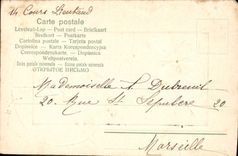 14 Cours Lieutaud
Carte postale
Levelező-Lap — Post card — Briefkaart
Brefkort — Postkarte
Cartolina postale — Tarjeta postal
Dopisnice — Karta Korespondencyjna
Correspondenzkarte — Dopisnica
Weltpostverein.
ОТКРЫТОЕ ПИСЬМО
Mademoiselle A. Dubreuil
20. Rue St Sepulcre 20
Marseille